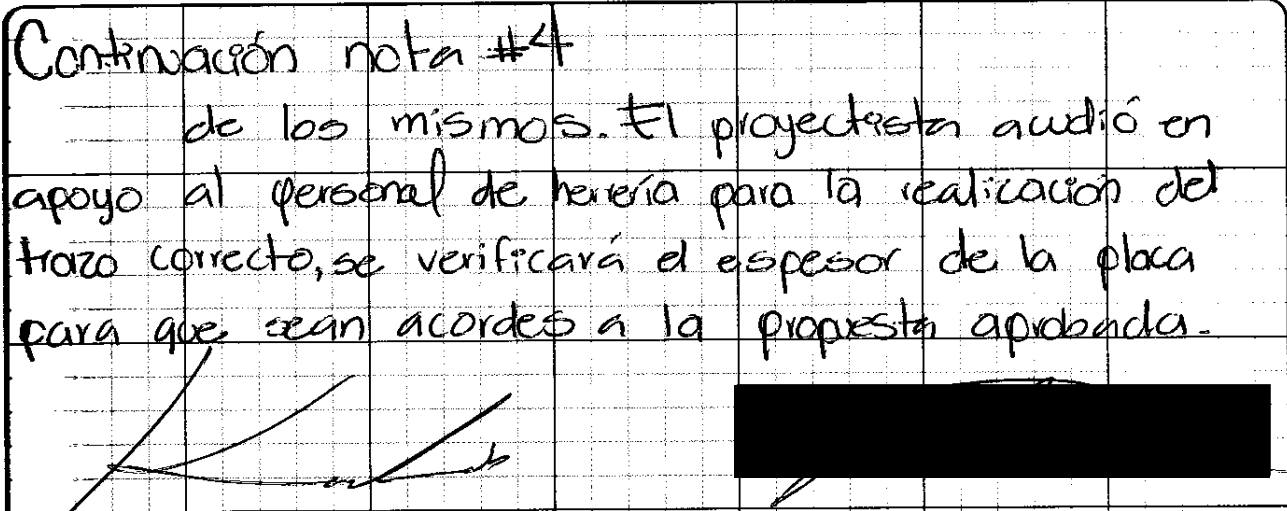 Continuación nota #4
de los mismos. El proyectista acudió en
apoyo al personal de herrería para la realicación del
trazo correcto, se verificará el espesor de la placa
para que sean acordes a la propuesta aprobada.